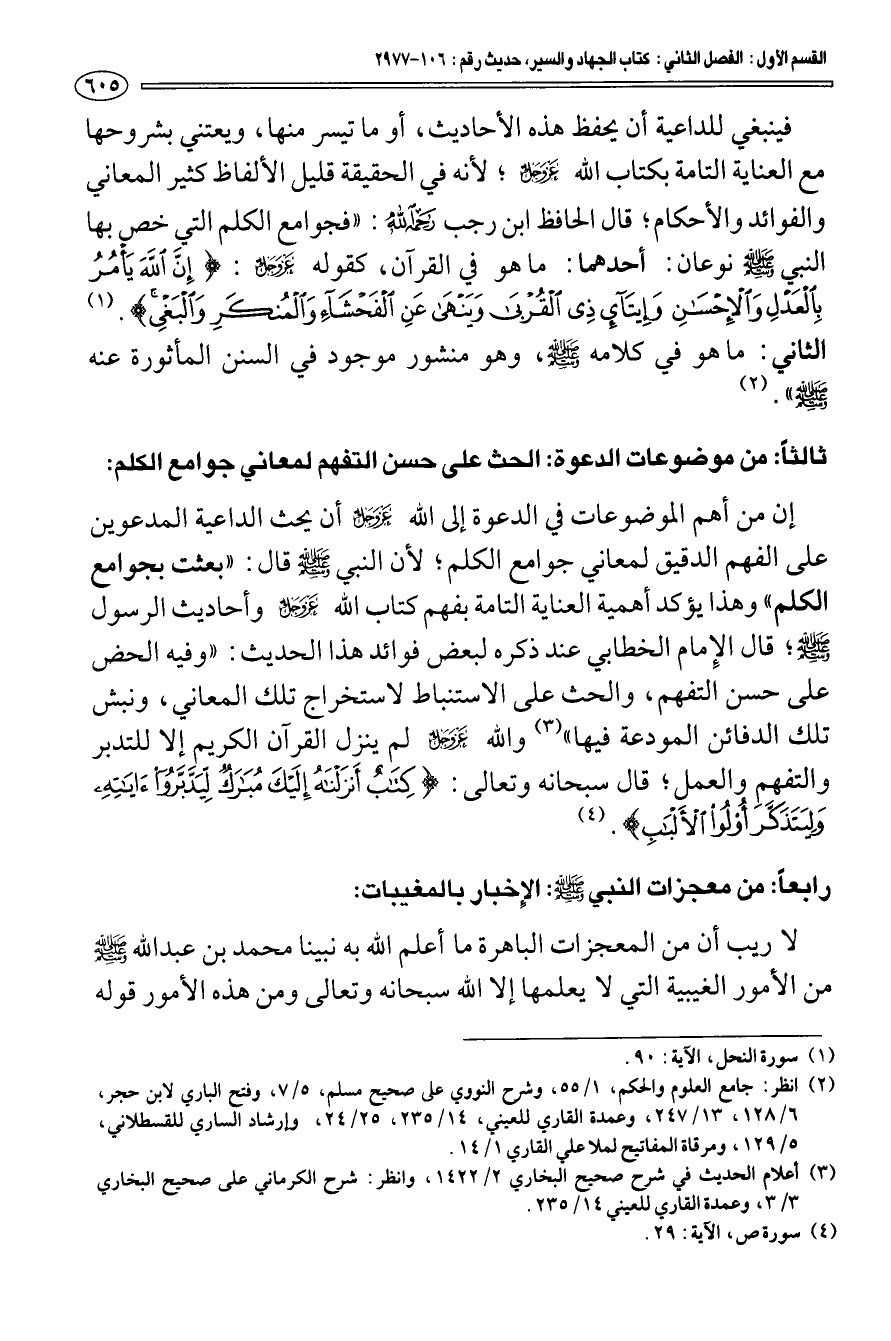 القسم الأول: الفصل الثاني: كتاب الجهاد والسير، حديث رقم: ١٠٦-٢٩٧٧
٦٠٥
فينبغي للداعية أن يحفظ هذه الأحاديث، أو ما تيسر منها، ويعتني بشروحها
مع العناية التامة بكتاب الله عَزَّوَجَلَّ؛ لأنه في الحقيقة قليل الألفاظ كثير المعاني
والفوائد والأحكام؛ قال الحافظ ابن رجب رَحِمَهُ اللَّهُ: «فجوامع الكلم التي خص بها
النبي ﷺ نوعان: أحدهما: ما هو في القرآن، كقوله عَزَّوَجَلَّ: ﴿ إِنَّ ٱللَّهَ يَأْمُرُ
بِٱلْعَدْلِ وَٱلْإِحْسَٰنِ وَإِيتَآئِ ذِى ٱلْقُرْبَىٰ وَيَنْهَىٰ عَنِ ٱلْفَحْشَآءِ وَٱلْمُنكَرِ وَٱلْبَغْىِ ۚ﴾. (١)
الثاني: ما هو في كلامه ﷺ، وهو منشور موجود في السنن المأثورة عنه
ﷺ». (٢)
ثالثاً: من موضوعات الدعوة: الحث على حسن التفهم لمعاني جوامع الكلم:
إن من أهم الموضوعات في الدعوة إلى الله عَزَّوَجَلَّ أن يحث الداعية المدعوين
على الفهم الدقيق لمعاني جوامع الكلم؛ لأن النبي ﷺ قال: «بعثت بجوامع
الكلم» وهذا يؤكد أهمية العناية التامة بفهم كتاب الله عَزَّوَجَلَّ وأحاديث الرسول
ﷺ؛ قال الإمام الخطابي عند ذكره لبعض فوائد هذا الحديث: «وفيه الحض
على حسن التفهم، والحث على الاستنباط لاستخراج تلك المعاني، ونبش
تلك الدفائن المودعة فيها»(٣) والله عَزَّوَجَلَّ لم ينزل القرآن الكريم إلا للتدبر
والتفهم والعمل؛ قال سبحانه وتعالى: ﴿ كِتَٰبٌ أَنزَلْنَٰهُ إِلَيْكَ مُبَٰرَكٌ لِّيَدَّبَّرُوٓا۟ ءَايَٰتِهِۦ
وَلِيَتَذَكَّرَ أُو۟لُوا۟ ٱلْأَلْبَٰبِ﴾. (٤)
رابعاً: من معجزات النبي ﷺ: الإخبار بالمغيبات:
لا ريب أن من المعجزات الباهرة ما أعلم الله به نبينا محمد بن عبدالله ﷺ
من الأمور الغيبية التي لا يعلمها إلا الله سبحانه وتعالى ومن هذه الأمور قوله
(١) سورة النحل، الآية: ٩٠.
(٢) انظر: جامع العلوم والحكم، ١/ ٥٥، وشرح النووي على صحيح مسلم، ٥/ ٧، وفتح الباري لابن حجر،
٦/ ١٢٨، ١٣/ ٢٤٧، وعمدة القاري للعيني، ١٤/ ٢٣٥، ٢٥/ ٢٤، وإرشاد الساري للقسطلاني،
٥/ ١٢٩، ومرقاة المفاتيح لملا علي القاري ١/ ١٤.
(٣) أعلام الحديث في شرح صحيح البخاري ٢/ ١٤٢٢، وانظر: شرح الكرماني على صحيح البخاري
٣/ ٣، وعمدة القاري للعيني ١٤/ ٢٣٥.
(٤) سورة ص، الآية: ٢٩.